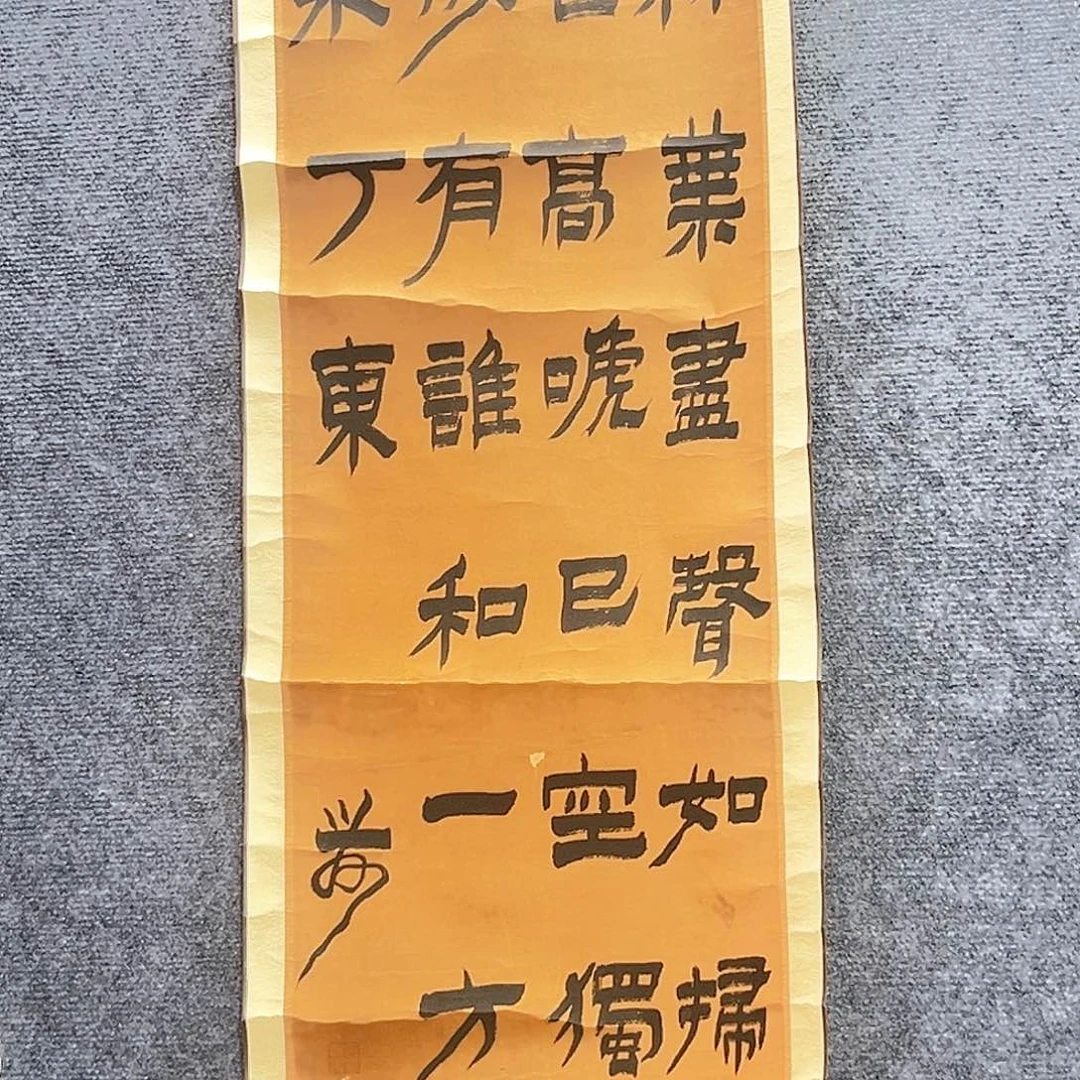 葉盡聲如掃
高晚已空獨
有誰和一方
丁東